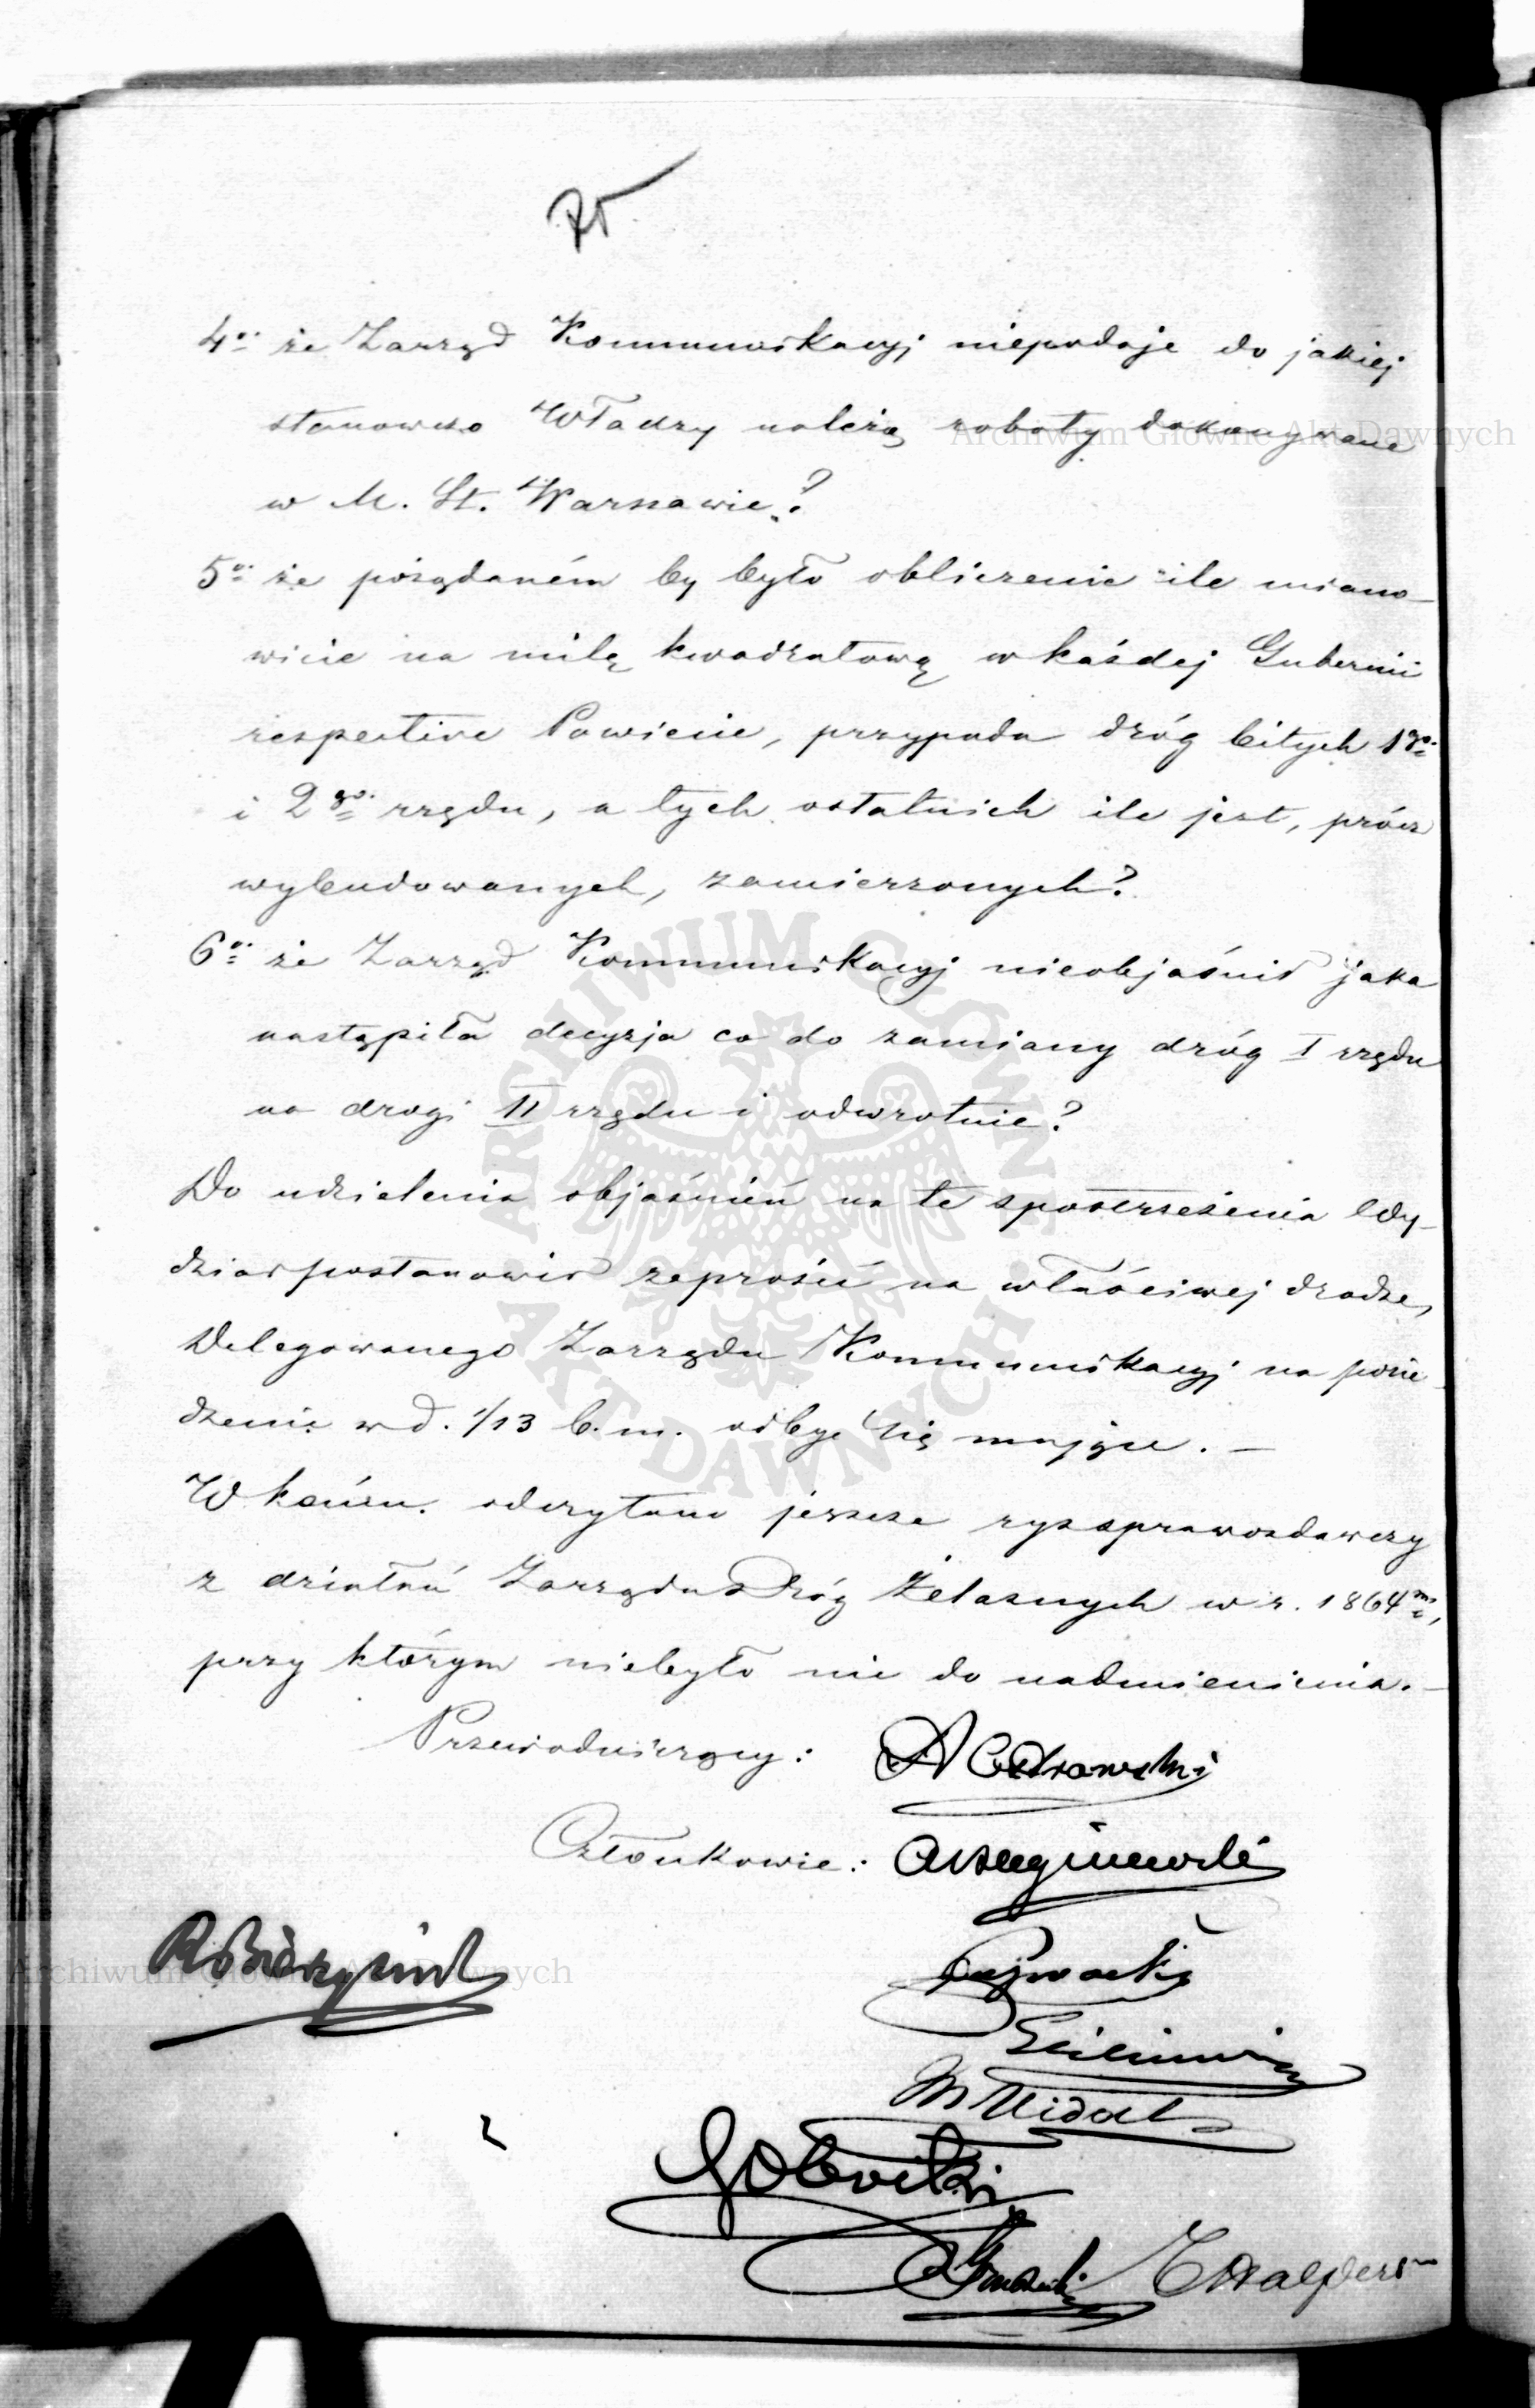 4o że Zarząd Kommunikacyj niepodaje do jakiej
stanowczo Władzy należą roboty dokonywane
w M. St. Warszawie?
5o że pożądaném by było obliczenie ile miano-
wicie na milę kwadratową w każdej Gubernii
respective Powiecie, przypada dróg bitych 1go
i 2go rzędu, a tych ostatnich ile jest, prócz
wybudowanych, zamierzonych?
6o że Zarząd Kommunikacyj nieobjaśnił jaka
nastąpiła decyzja co do zamiany dróg I rzędu
na drogi II rzędu i odwrotnie?
Do udzielenia objaśnień na te spostrzeżenia Wy-
dział postanowił zaprosić na właściwej drodze,
Delegowanego Zarządu Kommunikacyj na posie-
dzenie w d. 1/13 b. m. odbyć się mające. —
W końcu odczytano jeszcze rys sprawozdawczy
z działań Zarządu Dróg Żelaznych w r. 1864m,
przy którym niebyło nic do nadmienienia. —
Przewodniczący: A Ostrowski
Członkowie:
M Vidal
Archiwum Główne Akt Dawnych
Archiwum Główne Akt Dawnych
ARCHIWUM GŁÓWNE AKT DAWNYCH